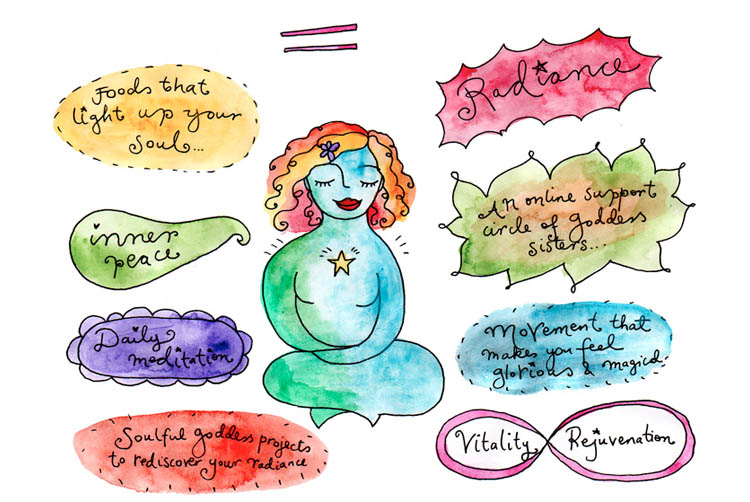 Foods that
light up your
soul...
inner
peace
Daily
meditation
Soulful goddess projects
to rediscover your radiance
Radiance
An online support
circle of goddess
sisters...
Movement that
makes you feel
glorious & magical
Vitality
Rejuvenation